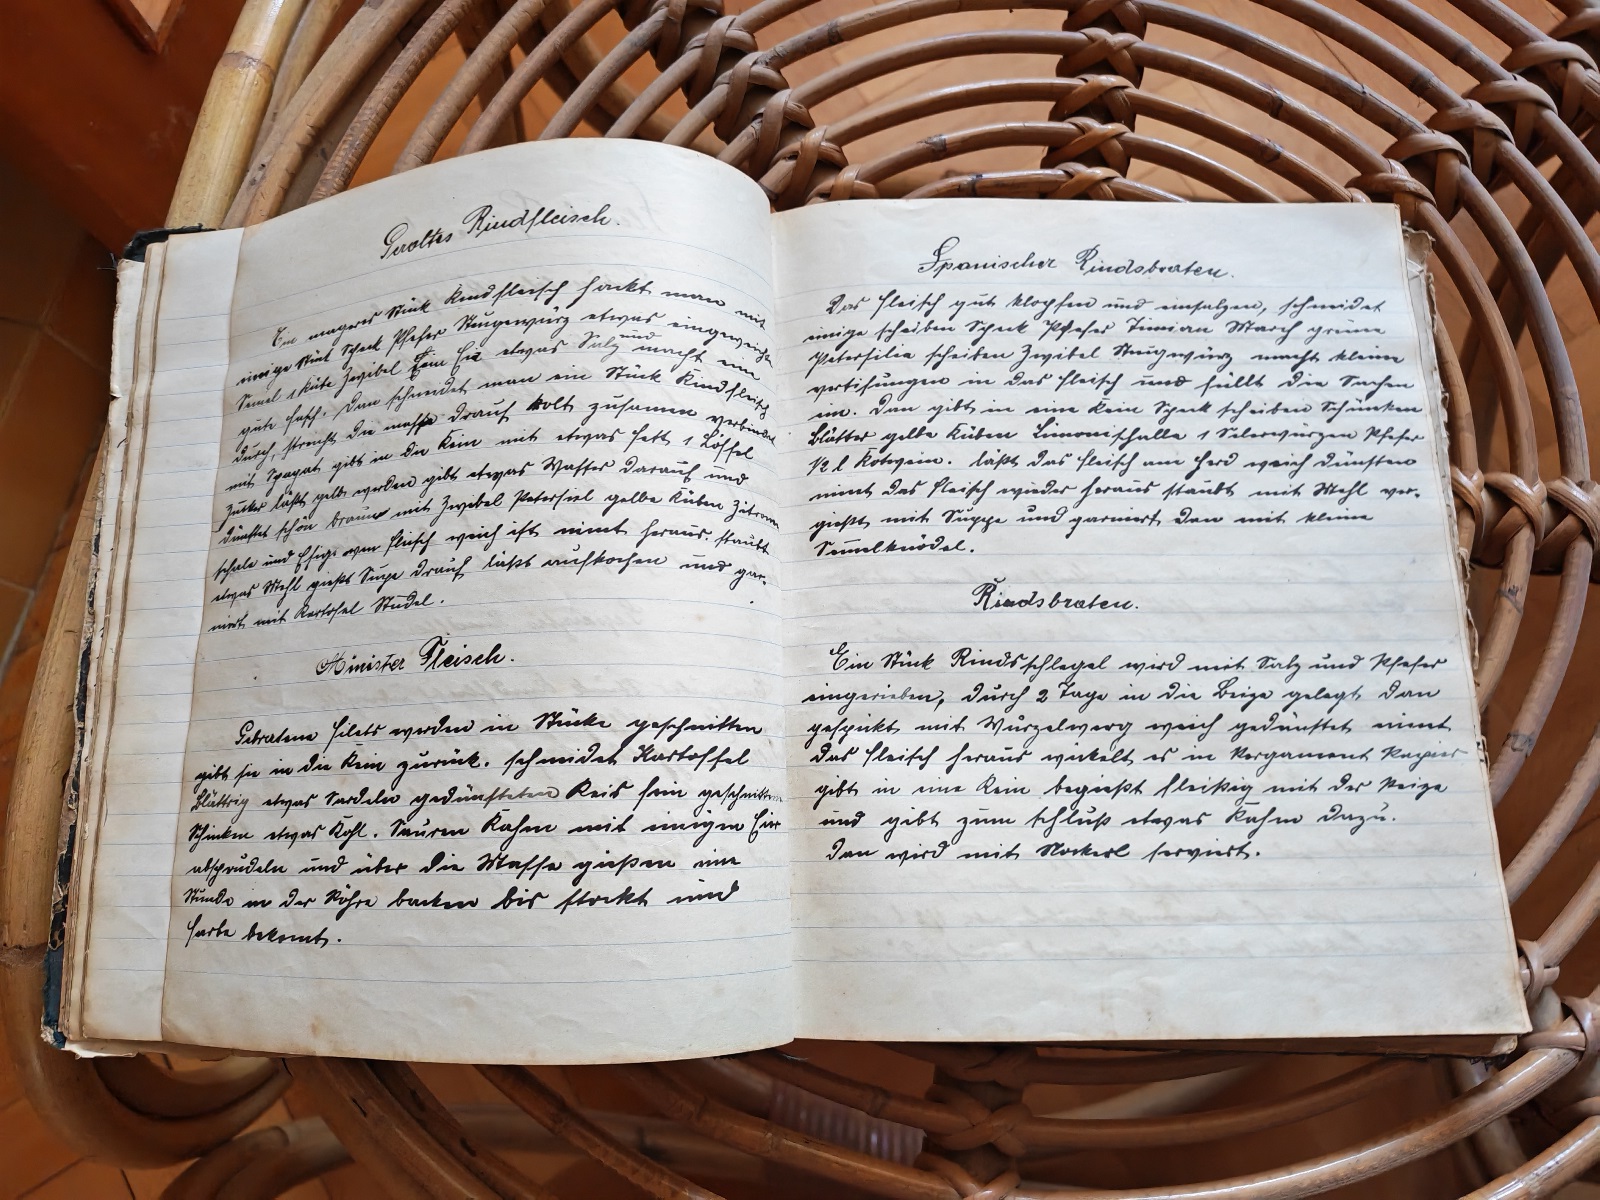 Gerolltes Rindfleisch.
Ein mageres Stük Rindfleisch hackt man mit
einige Stük Speck Pfefer Neugewürz etwas eingeweichte
Semel 1 Zwibel Ein Ei etwas Salz und macht ein
gute Fasch. Dan schneidet man ein Stück Rindfleisch
durch, streicht die masse drauf Rolt zusamen verbindet
mit Spagat gibt in die Rein mit etwas Fett 1 Löffel
Zucker läßt gelb werden gibt etwas Wasser darauf und
dünstet schön braun mit Zwibel Petersiel gelbe Rüben Zitronen
schale und Essig wen Fleisch weich ist nimt heraus. staubt
etwas Mehl gießt Supe drauf läßt aufkochen und gar-
niert mit Kartofel Nudel.
Minister Fleisch.
Gebratene Filets werden in Stücke geschnitten
gibt sie in die Rein zurück. schneidet Kartoffel
blättrig etwas Sardeln gedünsteten Reis fein geschnitten
Schinken etwas Kohl. Sauren Rahm mit einigen Eier
absprudeln und über die Masse gießen eine
Stunde in der Röhre backen bis stockt und
Farbe bekomt.
Spanischer Rindsbraten.
Das Fleisch gut klopfen und einsalzen, schneidet
einige scheiben Speck Pfefer Timian March grüne
Petersilie scheiben Zwibel Neugwürz macht kleine
vertifungen in das Fleisch und füllt die Sachen
ein. Dan gibt in eine Rein Speck scheiben Schünken
Blätter gelbe Rüben Limonischalle 1 Selerwurzen Pfefer
1/2 l Rotwein. läßt das Fleisch am Herd weich dünsten
nimt das Fleisch wieder heraus staubt mit Mehl ver-
gießt mit Suppe und garniert dan mit kleine
Semelknödel.
Rindsbraten.
Ein Stük Rindsschlegel wird mit Salz und Pfefer
eingerieben, durch 2 Tage in die Beize gelegt dan
gespikt mit Wurzelwerg weich gedünstet nimt
das Fleisch heraus wikelt es in Pergament Papier
gibt in eine Rein begießt fleißig mit der Beize
und gibt zum schluß etwas Rahm dazu.
dan wird mit Nockerl serviert.